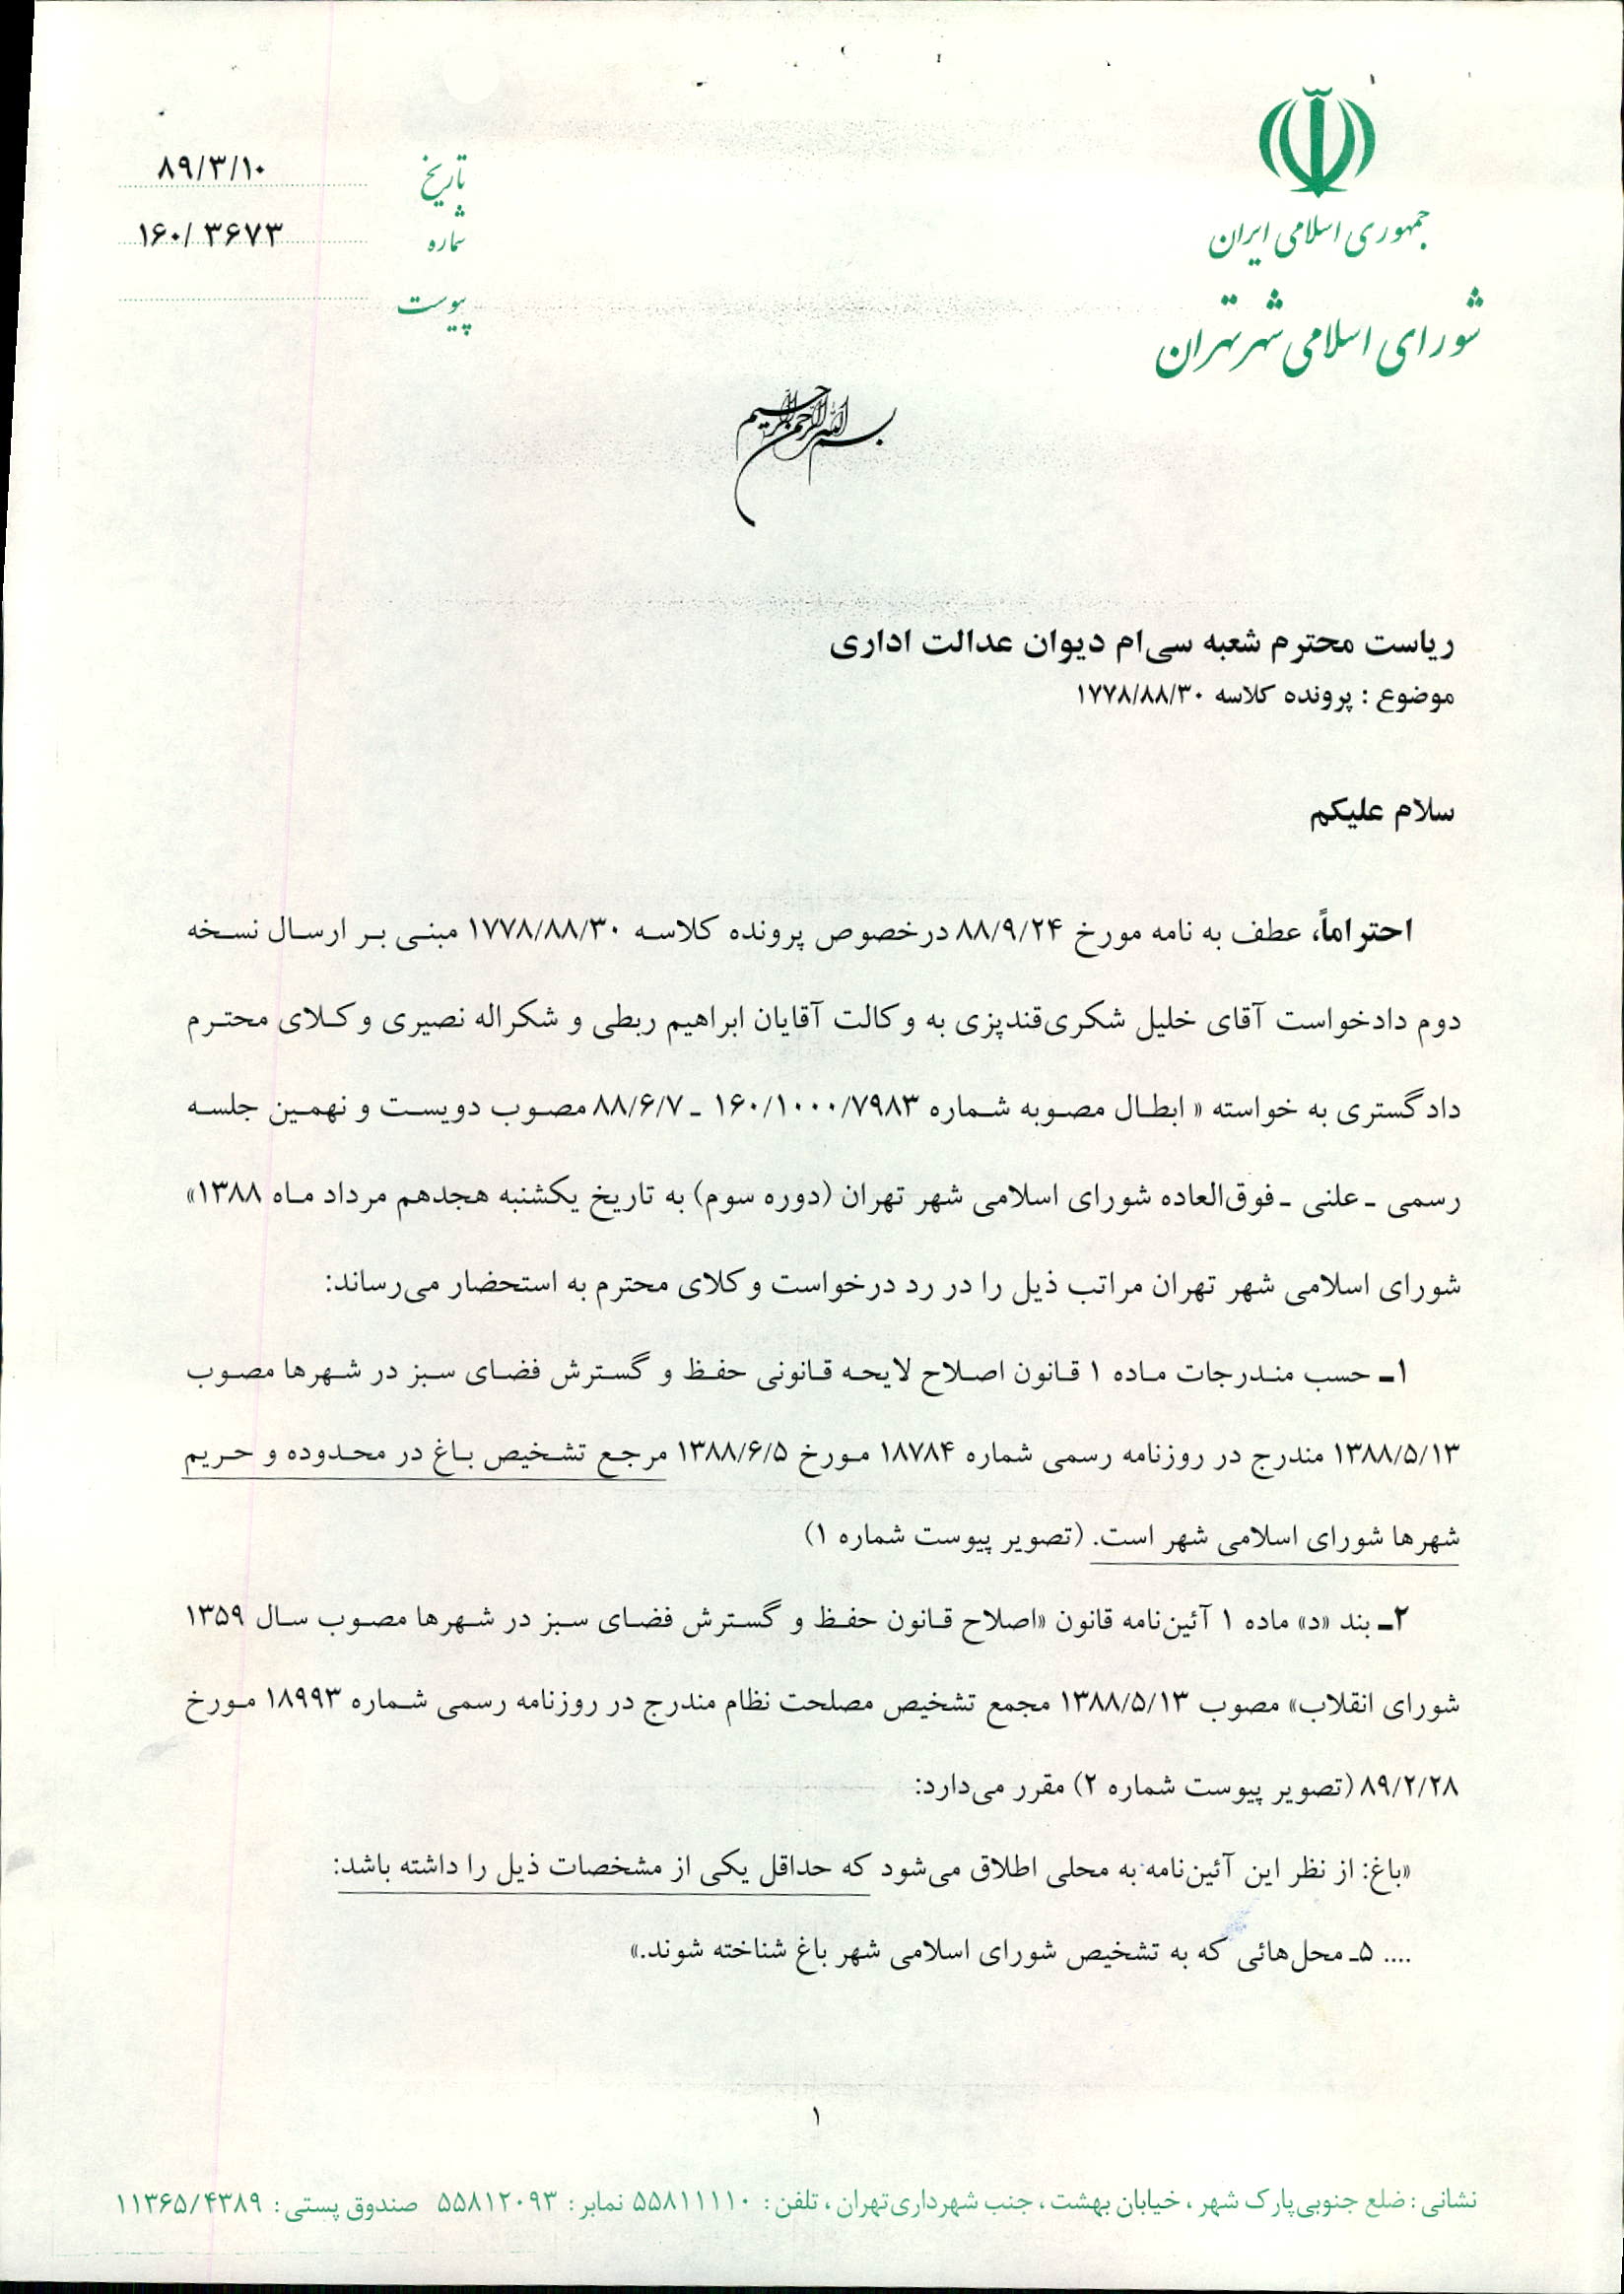 جمهوری اسلامی ایران
شورای اسلامی شهر تهران
تاریخ ۸۹/۳/۱۰
شماره ۱۶۰/۳۶۷۳
پیوست
بسم الله الرحمن الرحیم
ریاست محترم شعبه سی‌ام دیوان عدالت اداری
موضوع : پرونده کلاسه ۱۷۷۸/۸۸/۳۰
سلام علیکم
احتراماً، عطف به نامه مورخ ۸۸/۹/۲۴ درخصوص پرونده کلاسه ۱۷۷۸/۸۸/۳۰ مبنی بر ارسال نسخه
دوم دادخواست آقای خلیل شکری‌قندپزی به وکالت آقایان ابراهیم ربطی و شکراله نصیری وکلای محترم
دادگستری به خواسته « ابطال مصوبه شماره ۱۶۰/۱۰۰۰/۷۹۸۳ ـ ۸۸/۶/۷ مصوب دویست و نهمین جلسه
رسمی ـ علنی ـ فوق‌العاده شورای اسلامی شهر تهران (دوره سوم) به تاریخ یکشنبه هجدهم مرداد ماه ۱۳۸۸»
شورای اسلامی شهر تهران مراتب ذیل را در رد درخواست وکلای محترم به استحضار می‌رساند:
۱ـ حسب مندرجات ماده ۱ قانون اصلاح لایحه قانونی حفظ و گسترش فضای سبز در شهرها مصوب
۱۳۸۸/۵/۱۳ مندرج در روزنامه رسمی شماره ۱۸۷۸۴ مورخ ۱۳۸۸/۶/۵ مرجع تشخیص باغ در محدوده و حریم
شهرها شورای اسلامی شهر است. (تصویر پیوست شماره ۱)
۲ـ بند «د» ماده ۱ آئین‌نامه قانون «اصلاح قانون حفظ و گسترش فضای سبز در شهرها مصوب سال ۱۳۵۹
شورای انقلاب» مصوب ۱۳۸۸/۵/۱۳ مجمع تشخیص مصلحت نظام مندرج در روزنامه رسمی شماره ۱۸۹۹۳ مورخ
۸۹/۲/۲۸ (تصویر پیوست شماره ۲) مقرر می‌دارد:
«باغ: از نظر این آئین‌نامه به محلی اطلاق می‌شود که حداقل یکی از مشخصات ذیل را داشته باشد:
.... ۵ـ محل‌هائی که به تشخیص شورای اسلامی شهر باغ شناخته شوند.»
۱
نشانی : ضلع جنوبی‌پارک شهر ، خیابان بهشت ، جنب شهرداری‌تهران ، تلفن : ۵۵۸۱۱۱۱۰ نمابر : ۵۵۸۱۲۰۹۳ صندوق پستی : ۱۱۳۶۵/۴۳۸۹